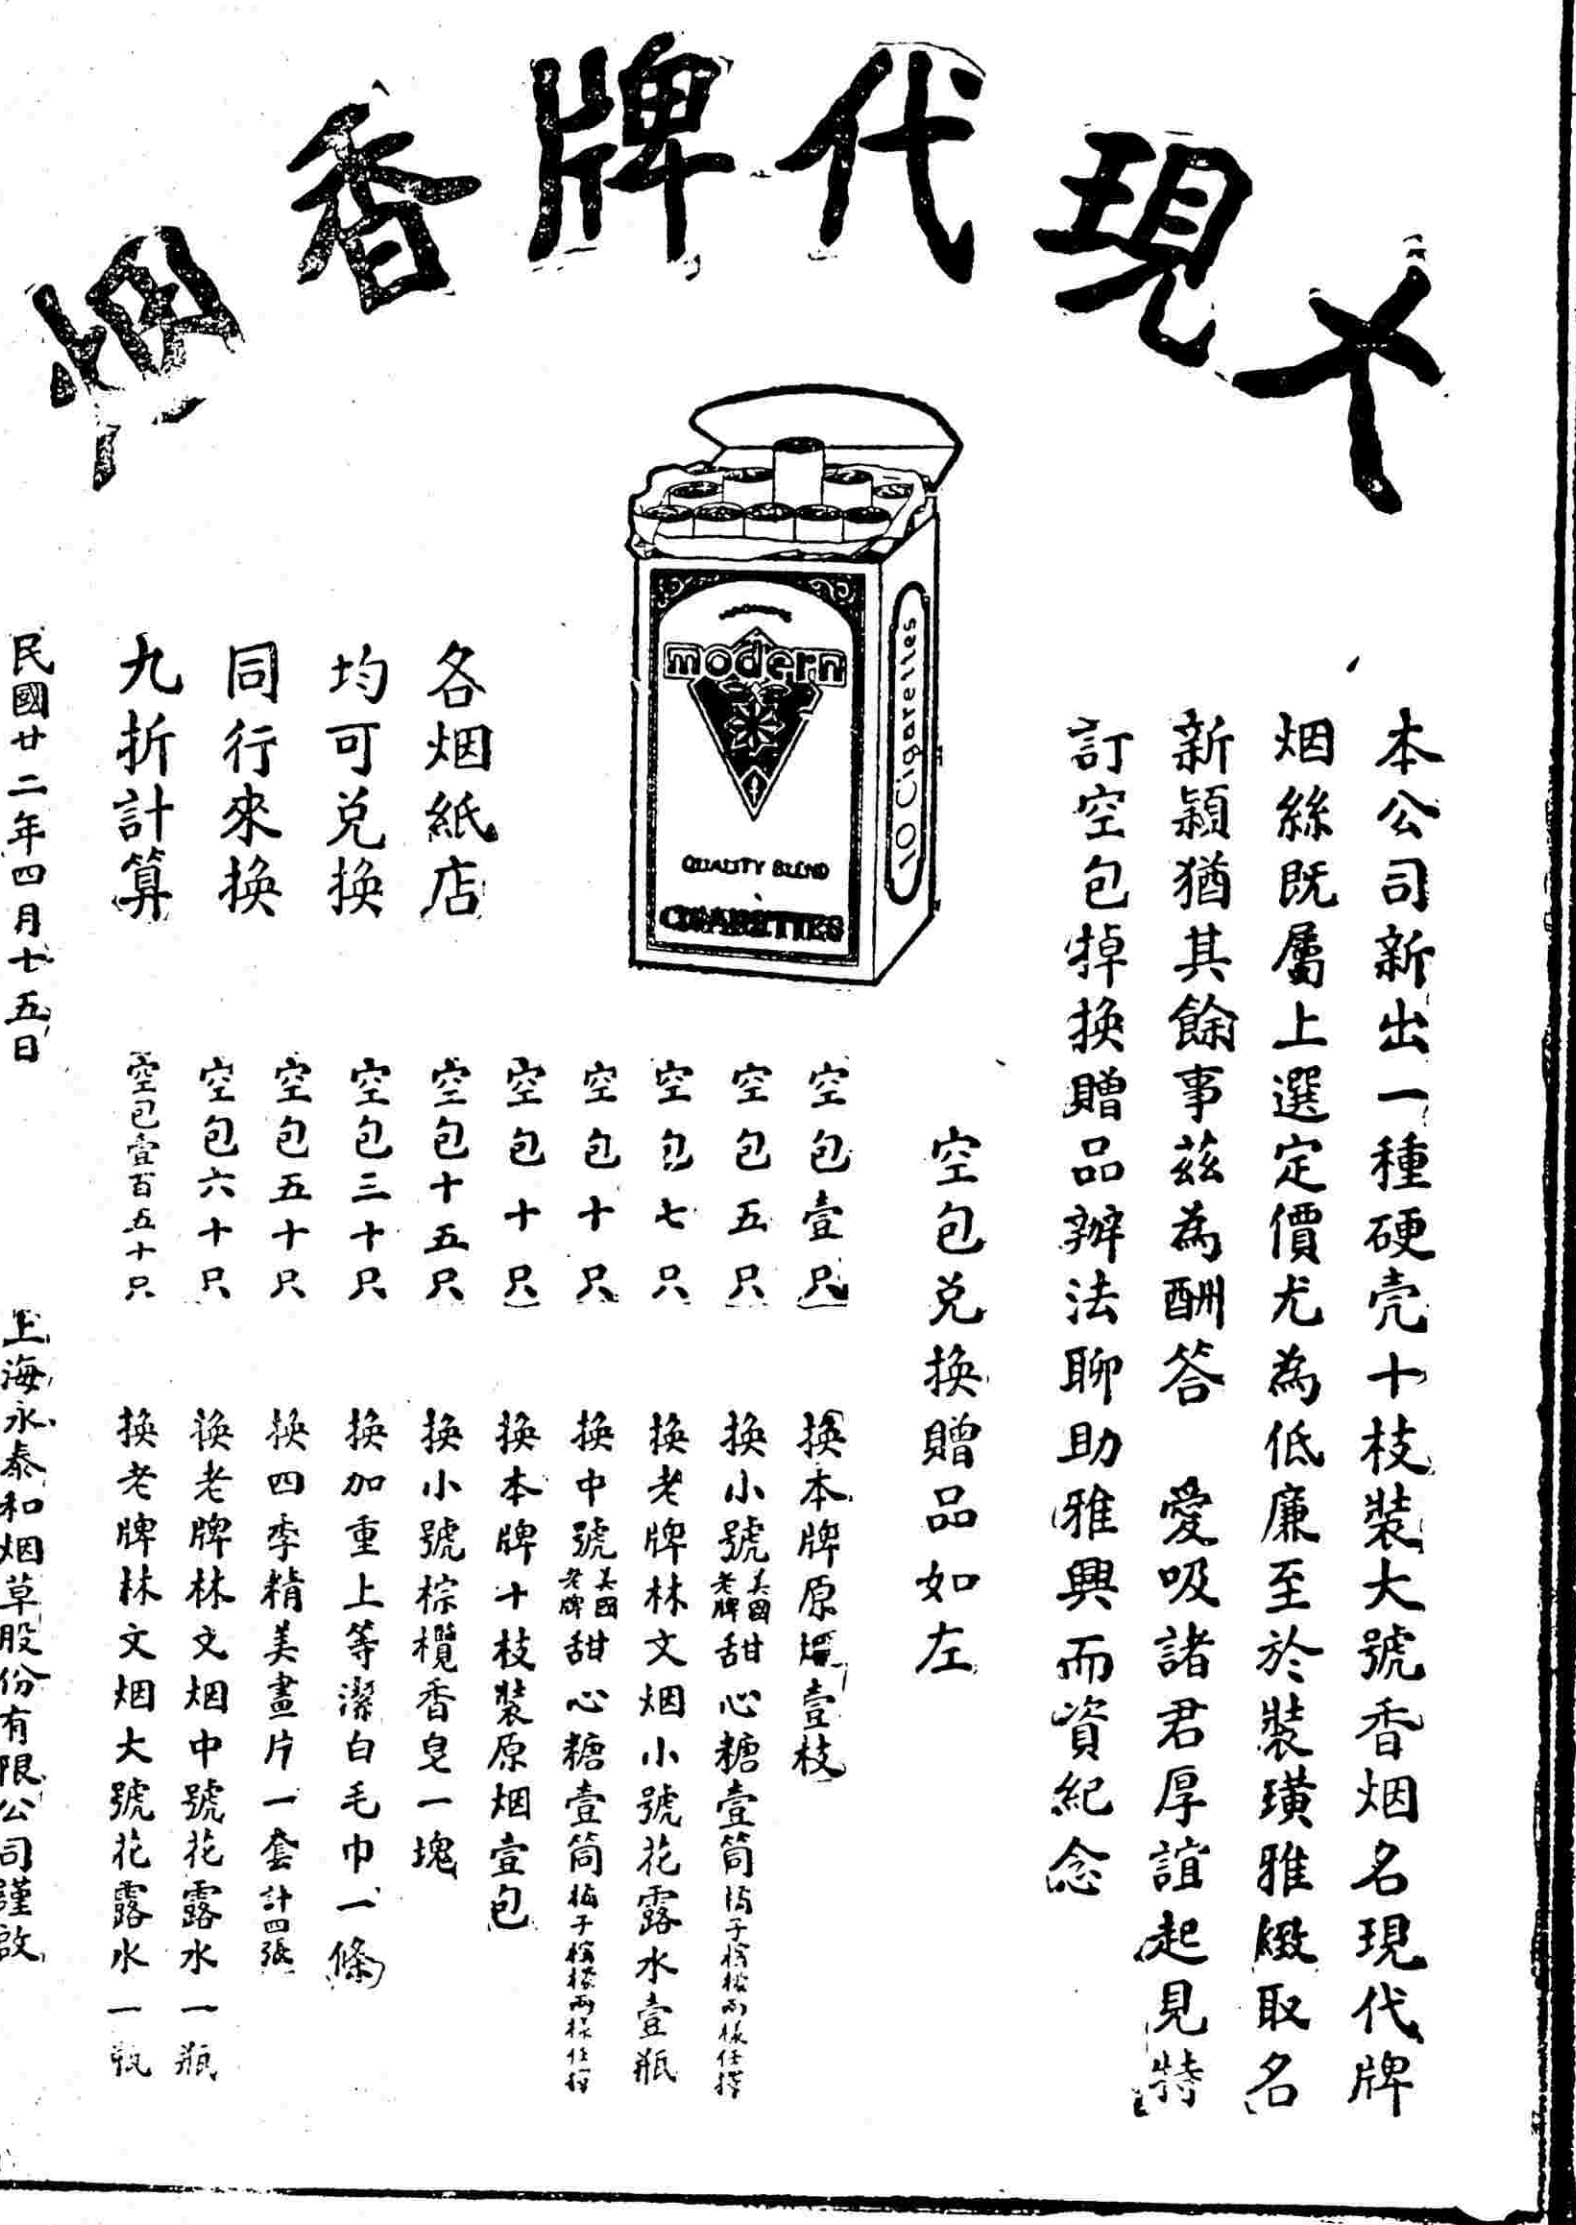 大現代牌香烟
本公司新出一種硬壳十枝裝大號香烟名現代牌
烟絲既屬上選定價尤為低廉至於裝璜雅緻取名
新穎猶其餘事茲為酬答 愛吸諸君厚誼起見特
訂空包掉換贈品辦法聊助雅興而資紀念
modern
QUALITY BLEND
CIGARETTES
10 Cigarettes
空包兑換贈品如左
空包壹只 換本牌原烟壹枝
空包五只 換小號美國老牌甜心糖壹筒梅子檳榔兩樣任擇
空包七只 換老牌林文烟小號花露水壹瓶
空包十只 換中號美國老牌甜心糖壹筒梅子檳榔兩樣任擇
空包十只 換本牌十枝裝原烟壹包
空包十五只 換小號棕欖香皂一塊
空包三十只 換加重上等潔白毛巾一條
空包五十只 換四季精美畫片一套計四張
空包六十只 換老牌林文烟中號花露水一瓶
空包壹百五十只 換老牌林文烟大號花露水一瓶
各烟紙店
均可兑換
同行來換
九折計算
民國廿二年四月十五日
上海永泰和烟草股份有限公司謹啟